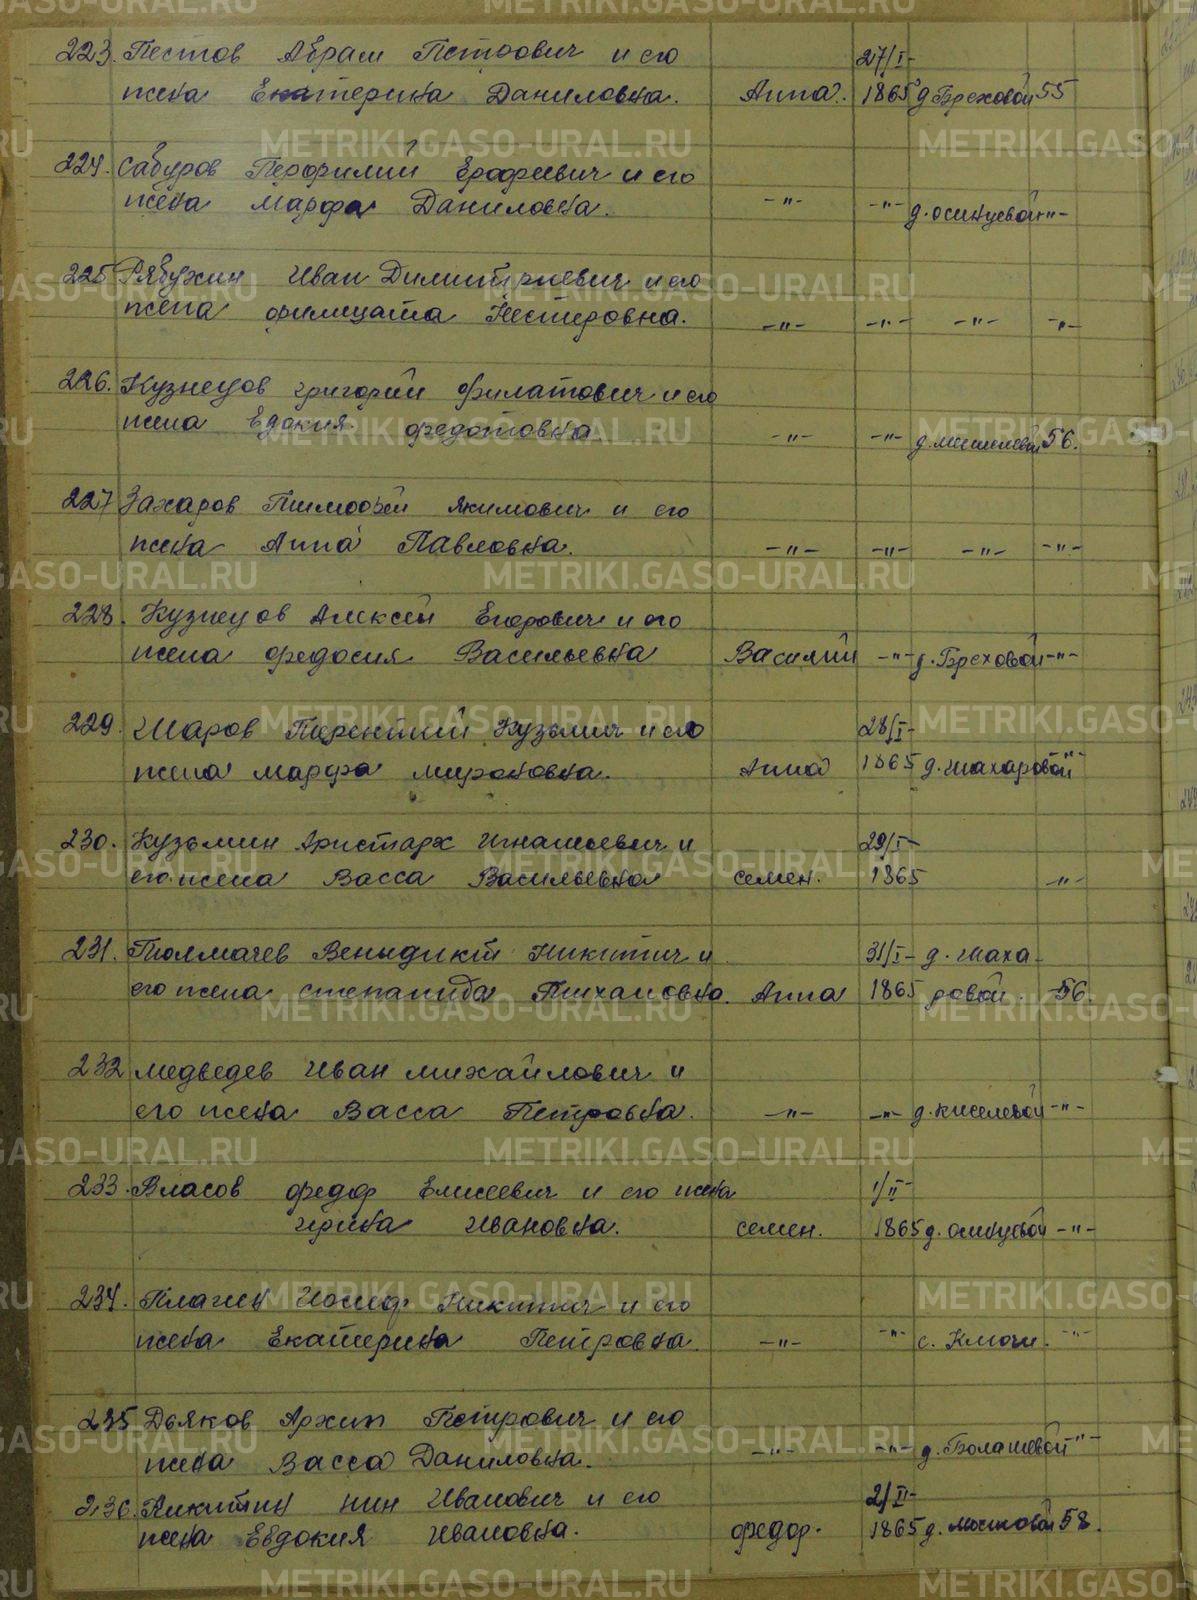 223. Пестов Абрам Петрович и его 27/I-
жена Екатерина Даниловна. Анна. 1865 д. Бреховой 55
224. Сабуров Перфилий Ерофеевич и его
жена Марфа Даниловна. -"- -"- д. Осинцевой -"-
225 Рябухин Иван Димитриевич и его
жена Филицата Нестеровна. -"- -"- -"- -"-
226. Кузнецов Григорий Филатович и его
жена Евдокия Федотовна. -"- -"- д. 56.
227 Захаров Тимофей Якимович и его
жена Анна Павловна. -"- -"- -"- -"-
228. Кузнецов Алексей Егорович и его
жена Федосия Васильевна Василий -"- д. Бреховой -"-
229. Шаров Терентий Кузьмич и его 28/I-
жена Марфа Мироновна. Анна 1865 д. Шахаровой -"-
230. Кузьмин Аристарх Игнатьевич и 29/I-
его жена Васса Васильевна Семен. 1865 -"-
231. Толмачев Венидикт Никитич и 31/I- д. Шаха-
его жена Степанида Тихановна. Анна 1865 ровой. 56.
232 Медведев Иван Михайлович и
его жена Васса Петровна. -"- -"- д. Киселевой -"-
233. Власов Федор Елисеевич и его жена 1/II-
Ирина Ивановна. Семен. 1865 д. Осинцевой -"-
234. Плагин Иосиф Никитич и его
жена Екатерина Петровна. -"- -"- с. Ключи. -"-
235 Дьяков Архип Петрович и его
жена Васса Даниловна. -"- -"- д. Болашевой -"-
236. Никитин Иванович и его 2/II-
жена Евдокия Ивановна. Федор. 1865 д. 58.
METRIKI.GASO-URAL.RU